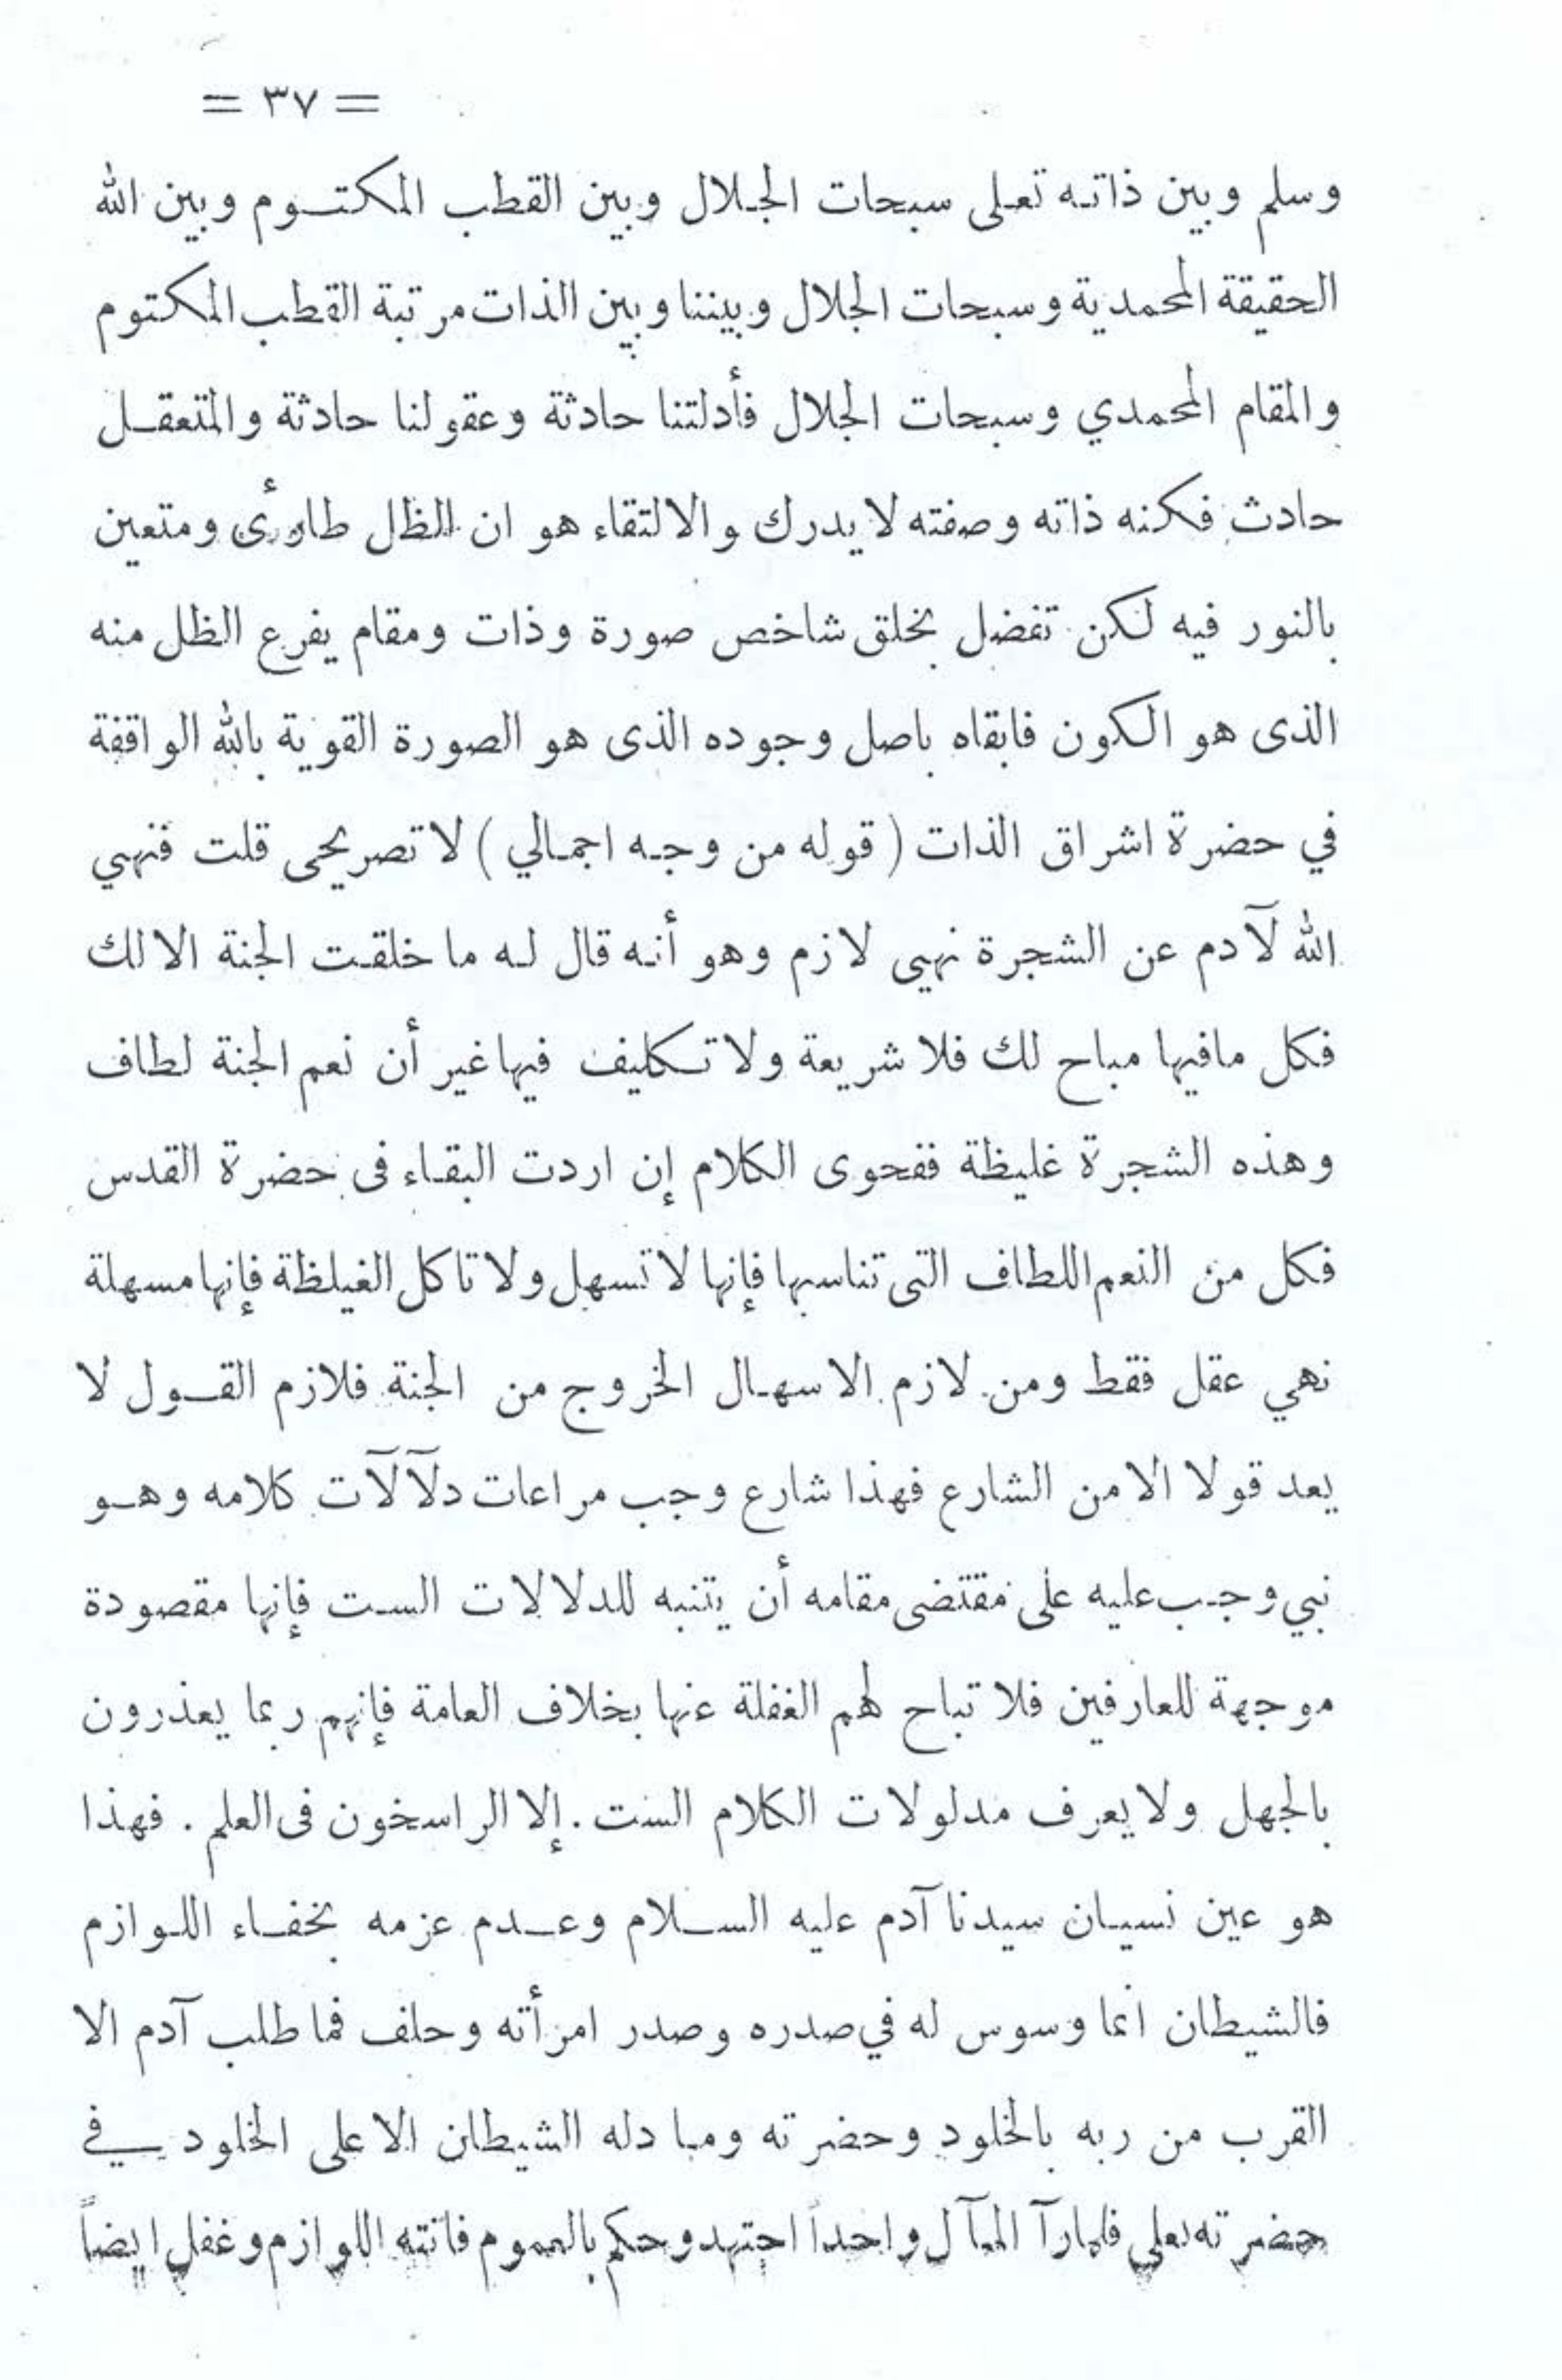 = ٣٧ =
وسلم وبين ذاته تعلى سبحات الجلال وبين القطب المكتوم وبين الله
الحقيقة المحمدية وسبحات الجلال وبيننا وبين الذات مرتبة القطب المكتوم
والمقام المحمدي وسبحات الجلال فأدلتنا حادثة وعقولنا حادثة والمتعقل
حادث فكنه ذاته وصفته لا يدرك والالتقاء هو ان الظل طارئ ومتعين
بالنور فيه لكن تفضل بخلق شاخص صورة وذات ومقام يفرع الظل منه
الذى هو الكون فابقاه باصل وجوده الذى هو الصورة القوية بالله الواقفة
في حضرة اشراق الذات ( قوله من وجه اجمالي ) لا تصريحى قلت فنهي
الله لآدم عن الشجرة نهيى لازم وهو أنه قال له ما خلقت الجنة الا لك
فكل مافيها مباح لك فلا شريعة ولا تكليف فيها غير أن نعم الجنة لطاف
وهذه الشجرة غليظة ففحوى الكلام إن اردت البقاء فى حضرة القدس
فكل من النعم اللطاف التى تناسبها فإنها لا تسهل ولا تاكل الغيلظة فإنها مسهلة
نهي عقل فقط ومن لازم الاسهال الخروج من الجنة فلازم القول لا
يعد قولا الا من الشارع فهذا شارع وجب مراعات دلآلآت كلامه وهو
نبي وجب عليه على مقتضى مقامه أن يتنبه للدلالات الست فإنها مقصودة
موجهة للعارفين فلا تباح لهم الغفلة عنها بخلاف العامة فإنهم ربما يعذرون
بالجهل ولا يعرف مدلولات الكلام الست . إلا الراسخون فى العلم . فهذا
هو عين نسيان سيدنا آدم عليه السلام وعدم عزمه بخفاء اللوازم
فالشيطان انما وسوس له في صدره وصدر امرأته وحلف فما طلب آدم الا
القرب من ربه بالخلود وحضرته وما دله الشيطان الا على الخلود في
حضرته تعلى فلما رآ المآل واحداً اجتهد وحكم بالعموم فاتته اللوازم وغفل ايضاً